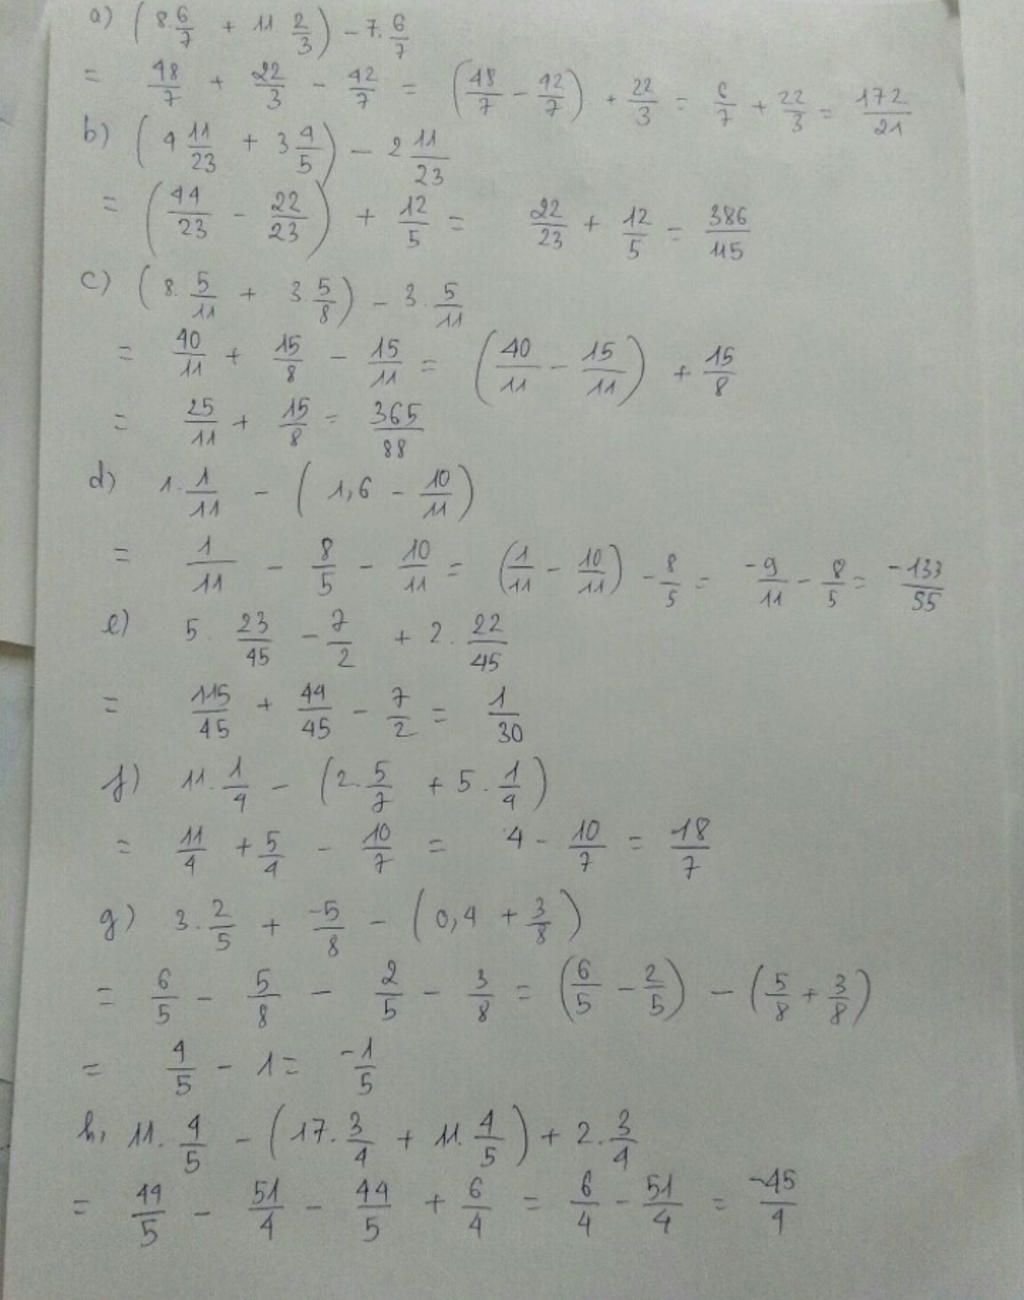 a) (8.6/7 + 11 2/3) - 7.6/7
= 48/7 + 22/3 - 42/7 = (48/7 - 42/7) + 22/3 = 6/7 + 22/3 = 172/21
b) (4 11/23 + 3 4/5) - 2 11/23
= (44/23 - 22/23) + 12/5 = 22/23 + 12/5 = 386/115
c) (8. 5/11 + 3 5/8) - 3. 5/11
= 40/11 + 15/8 - 15/11 = (40/11 - 15/11) + 15/8
= 25/11 + 15/8 = 365/88
d) 1. 1/11 - (1,6 - 10/11)
= 1/11 - 8/5 - 10/11 = (1/11 - 10/11) - 8/5 = -9/11 - 8/5 = -133/55
e) 5. 23/45 - 7/2 + 2. 22/45
= 115/45 + 44/45 - 7/2 = 1/30
f) 11. 1/4 - (2. 5/7 + 5. 1/4)
= 11/4 + 5/4 - 10/7 = 4 - 10/7 = 18/7
g) 3. 2/5 + -5/8 - (0,4 + 3/8)
= 6/5 - 5/8 - 2/5 - 3/8 = (6/5 - 2/5) - (5/8 + 3/8)
= 4/5 - 1 = -1/5
h, 11. 4/5 - (17. 3/4 + 11. 4/5) + 2. 3/4
= 44/5 - 51/4 - 44/5 + 6/4 = 6/4 - 51/4 = -45/4